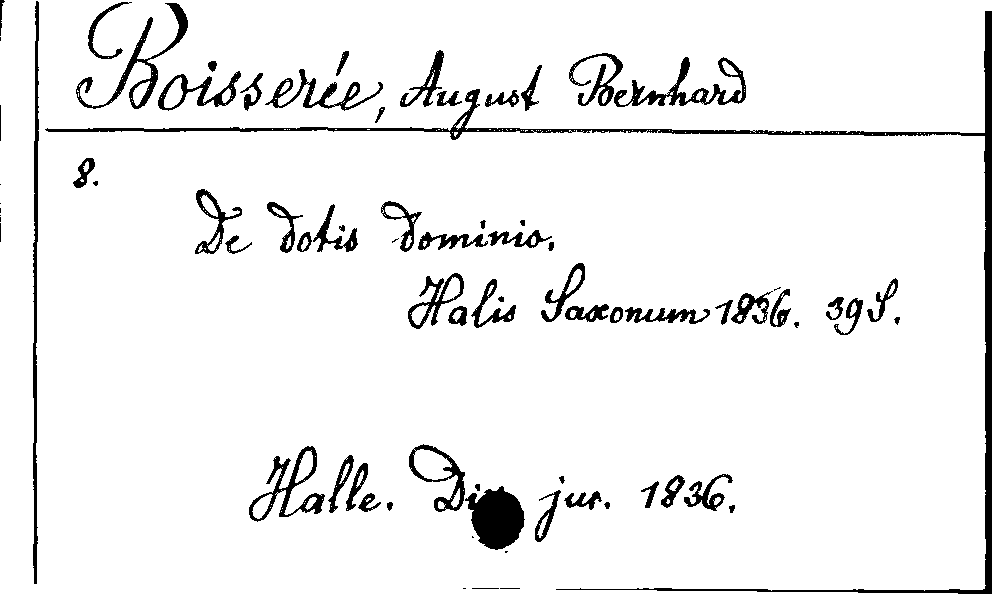 Boisserée, August Bernhard
8.
De dotis dominio.
Halis Saxonum 1836. 39 S.
Halle. jur. 1836.